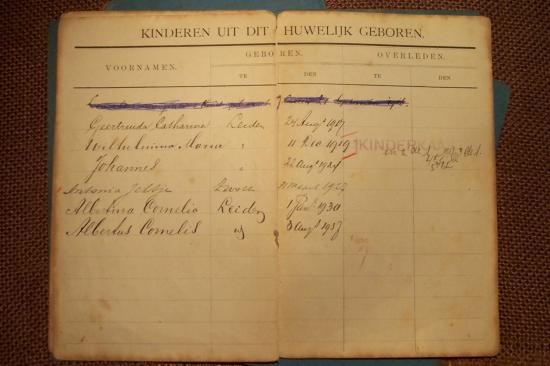 KINDEREN UIT DIT HUWELIJK GEBOREN.
VOORNAMEN.
GEBOREN.
OVERLEDEN.
TE
DEN
TE
DEN
Geertruida Catharina Leiden 24 Aug. 1917
Wilhelmina Maria " 11 Dec 1919
KINDER
Johannes " 22 Aug 1924
Antonia Jeltje Zwolle Maart
Albertina Cornelia Leiden 1 1930
Albertus Cornelis 3 Aug 1937